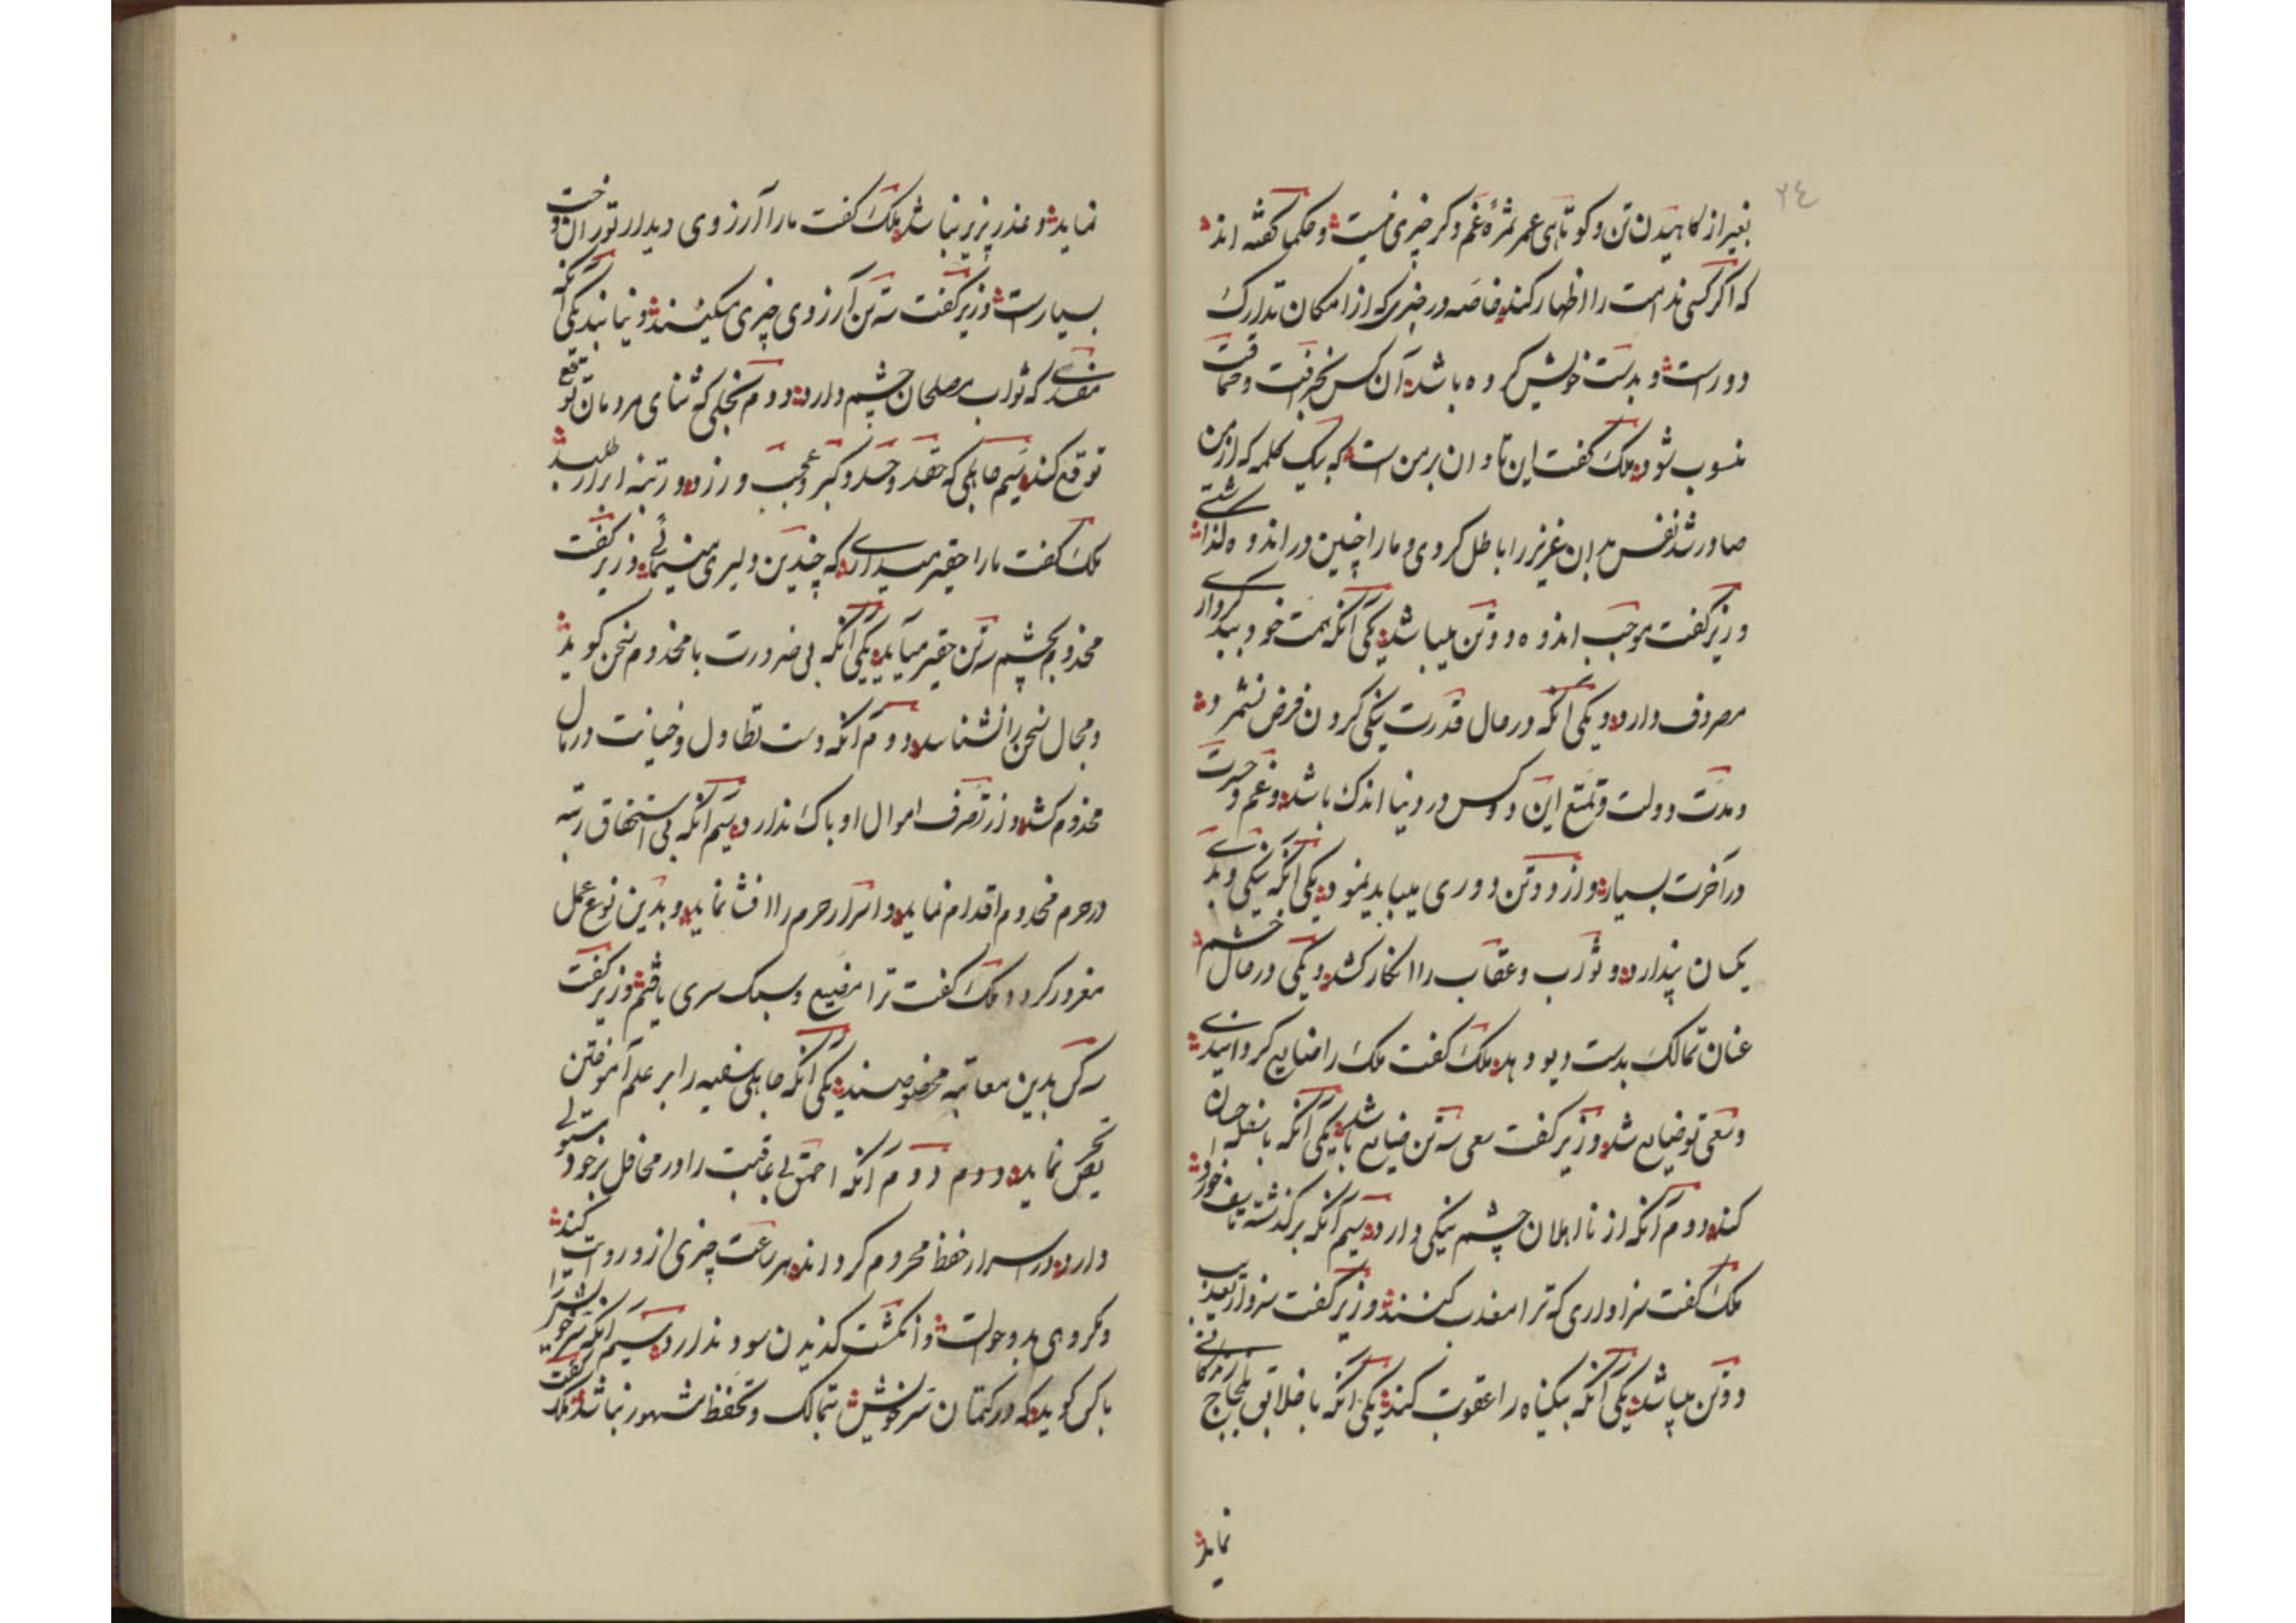 ٢٤
بغیر از کاهیدن تن و کوتاهی عمر ثمرهٔ غم و کر چیزی نیست و حکما کفته اند
که اکر کسی ندامت را اظهار کند خاصه در چیزی که از امکان تدارک
دورست و بدست خویش کرده باشد آن کس بخرافت و حماقت
منسوب شود ملک کفت این تاوان بر من است که بیک کلمه که از من
صادر شد نفس بدان عزیز را باطل کردی و ما را چنین در اندوه کذاشتی
وزیر کفت موجب اندوه دو تن میباشد یکی آنکه همت خود ببدکرداری
مصروف دارد و یکی آنکه در حال قدرت نیکی کردن فرض نشمرد
و مدت دولت و تمتع این دو کس در دنیا اندک باشد و غم و حسرت
در آخرت بسیار و از دو تن دوری میباید نمود یکی آنکه نیکی و بدی
یکسان پندارد و ثواب و عقاب را انکار کند و یکی در حال خشم
عنان تمالک بدست دیو دهد ملک کفت ملک را ضایع کردانیدی
و سعی تو ضایع شد وزیر کفت سعی سه تن ضایع باشد یکی آنکه با سفله احسان
کند دوم آنکه از نااهلان چشم نیکی دارد سیم آنکه بر کذشته تاسف خورد
ملک کفت سزاواری که ترا معذب کنند وزیر کفت سزاوار تعذیب
دو تن میباشد یکی آنکه بیکناه را عقوبت کند یکی آنکه با خلایق بلجاج زندکانی
نماید
نماید و عذر پزیر نباشد ملک کفت ما را آرزوی دیدار توران دخت
بسیارست وزیر کفت سه تن آرزوی چیزی میکنند و نیابند یکی آنکه
مفسدی که ثواب مصلحان چشم دارد دوم بخیلی که ثنای مردمان توقع
توقع کند سیم جاهلی که حقد و حسد و کبر و عجب ورزد و رتبهٔ ابرار طلبد
ملک کفت ما را حقیر میداری که چندین دلیری مینمائی وزیر کفت
مخدوم بچشم سه تن حقیر میآید یکی آنکه بی ضرورت با مخدوم سخن کوید
و مجال سخن را نشناسد دوم آنکه دست تطاول و خیانت در مال
مخدوم کشد و از تصرف اموال او باک ندارد سیم آنکه بی استحقاق رتبه
در حرم مخدوم اقدام نماید و اسرار حرم را افشا نماید و بدین نوع عمل
مغرور کردد ملک کفت ترا مضیع و سبک سری یافتم وزیر کفت
سه کس بدین معاتبه مخصوصند یکی آنکه جاهلی سفیه را بر علم آموختن
تحریص نماید دوم دوم آنکه احمق بی عاقبت را در محافل بر خود مستولی
دارد و در اسرار حفظ محروم کرداند هر ساعت چیزی از و روایت کند
و مکروهی بدو حوالت و انکشت کذیدن سود ندارد سیم آنکه سر خویش را
با کس کوید که در کتمان سر خویش بتمالک و تحفظ مشهور نباشد ملک کفت